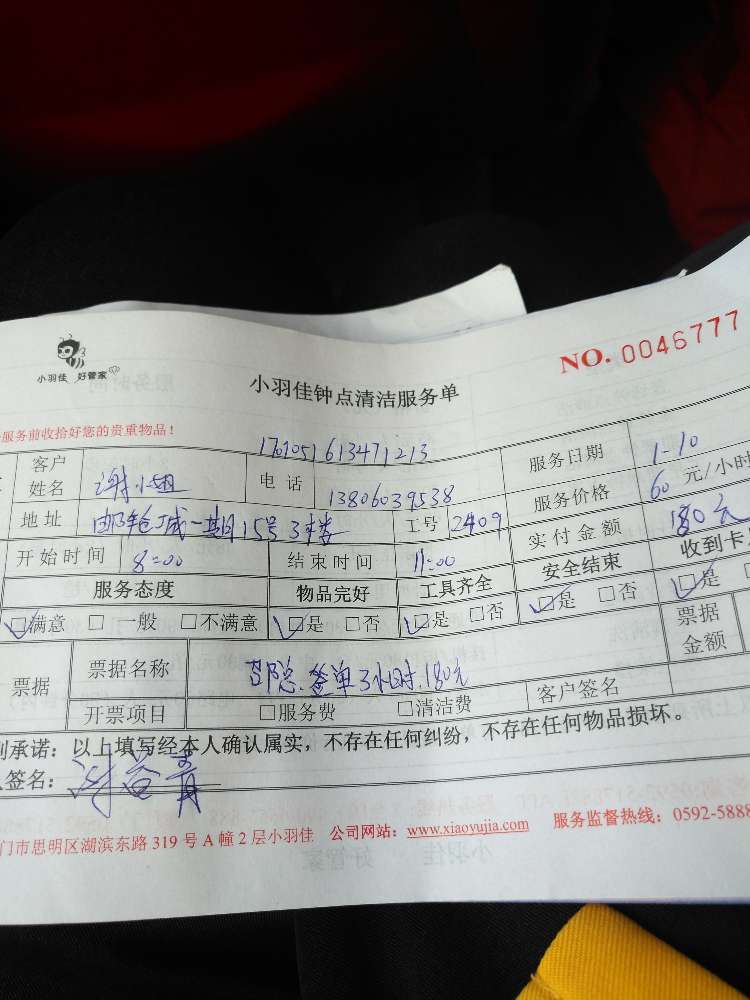 小羽佳 好管家
NO. 0046777
小羽佳钟点清洁服务单
服务前收拾好您的贵重物品！
1701051613471213
客户姓名 谢小姐 电话 13806039538 服务日期 1-10
地址 邮轮城一期15号3楼 工号 2409 服务价格 60 元/小时
开始时间 8:00 结束时间 11:00 实付金额 180元
服务态度 物品完好 工具齐全 安全结束 收到卡
☑满意 □一般 □不满意 ☑是 □否 ☑是 □否 ☑是 □否 ☑是
票据 票据名称 签单3小时.180元 票据金额
开票项目 □服务费 □清洁费 客户签名
承诺：以上填写经本人确认属实，不存在任何纠纷，不存在任何物品损坏。
签名：
门市思明区湖滨东路 319 号 A 幢 2 层小羽佳 公司网站：www.xiaoyujia.com 服务监督热线：0592-5888